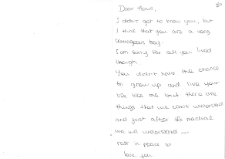 Dear Anne,
I didn't get to know you, but
I think that you are a very
courageous boy.
I am sorry for all you lived
though
You didn't have the chance
to grow up and live your
life like me but there are
things that we can't understand
and just after its
we understand ...
rest in peace
love you